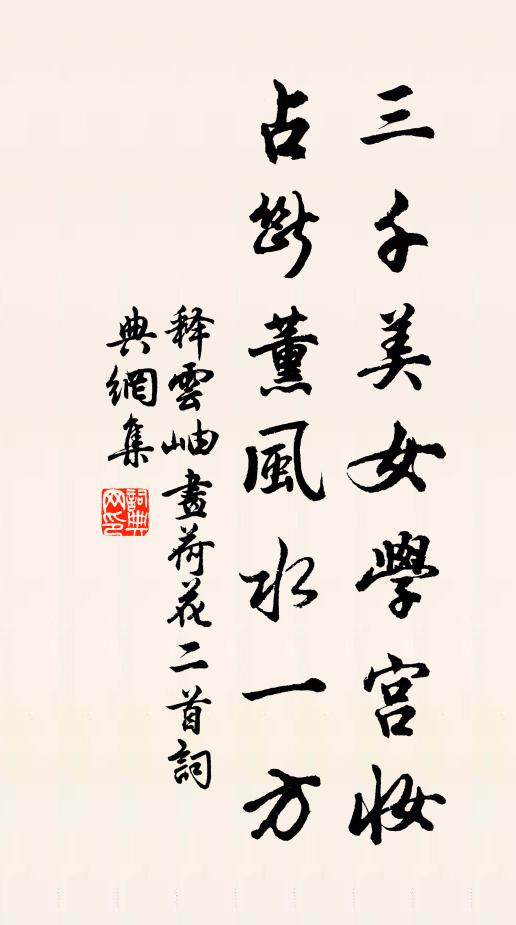 三千美女學宫妝
占斷薰風水一方
释雲岫畫荷花二首詞
典網集
詞典
网印